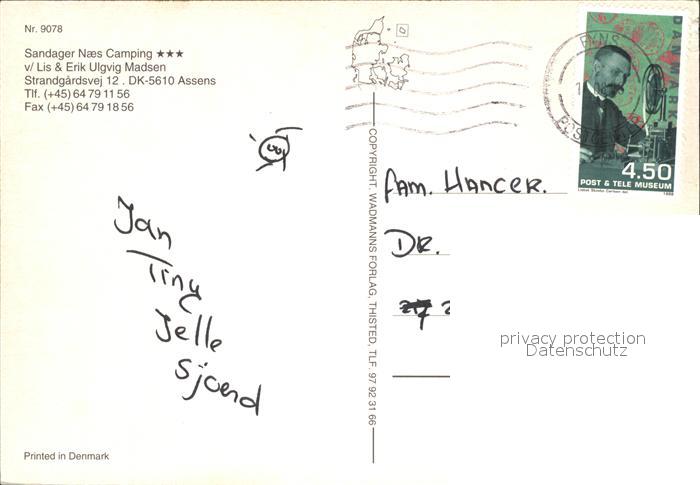 Nr. 9078
Sandager Næs Camping ★★★
v/ Lis & Erik Ulgvig Madsen
Strandgårdsvej 12 . DK-5610 Assens
Tlf. (+45) 64 79 11 56
Fax (+45) 64 79 18 56
Jan
Tiny
Jelle
Sjoerd
Printed in Denmark
COPYRIGHT. WADMANNS FORLAG, THISTED, TLF. 97 92 31 66
DANMARK
4.50
POST & TELE MUSEUM
1998
FYNS
Fam. Hancer.
Dr.
privacy protection
Datenschutz